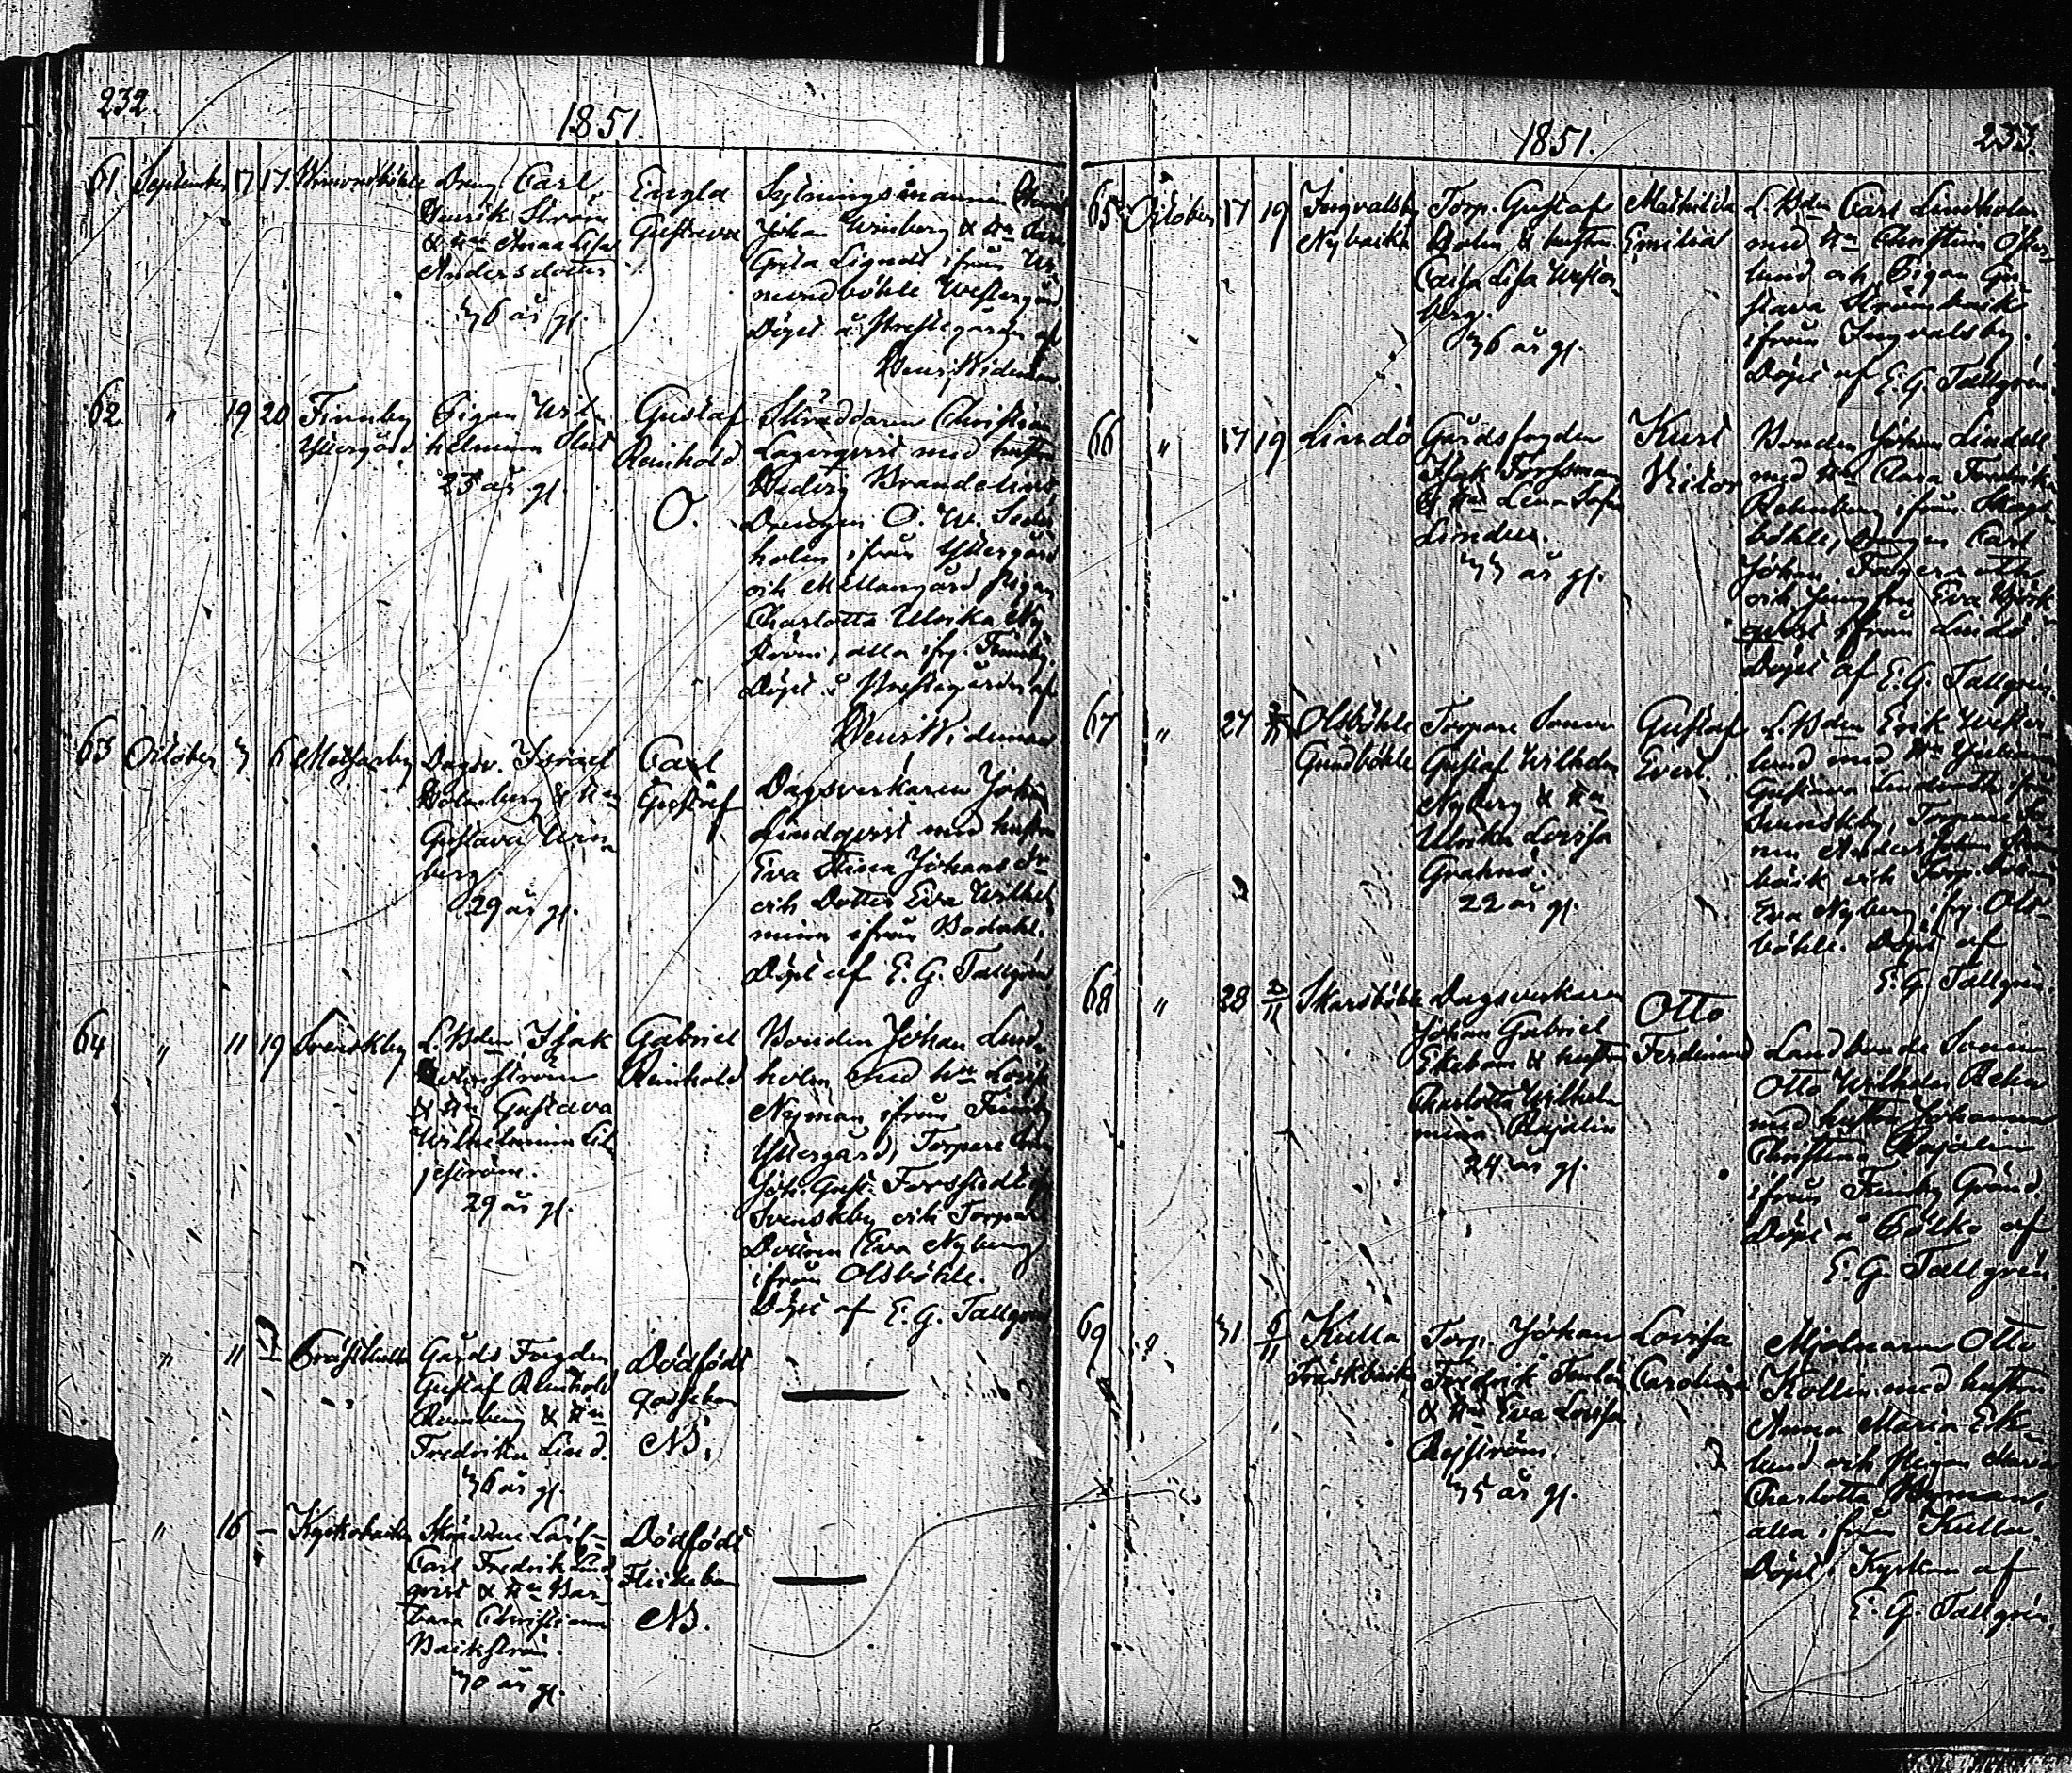 232.
1851.
61 September 17 17. Dreng. Carl
Henrik Ström
& Hu Anna Lisa
Andersdotter
36 år gl.
Engla
Gustava
Johan Winberg & Hu
Greta ifrån
böhle Westergård
Döpt å Prestegården af
Henr. Wideman
62 " 19 20 Finnby
Yttergård
Pigan Wil-
helmina
25 år gl.
Gustaf
Reinhold
O.
Skräddaren Christian
Lagerqvist med hustru
Hedvig Brandelius
Drengen O. W. Seder
holm ifrån Yttergård
och Mellangård Pigan
Charlotta Ulrika Ny-
ström, alla ifr. Finnby.
Döpt å Prestegården af
Henr. Widemand
63 October 3 6
Dagsv. Israel
Holmberg & Hu
Gustava Win-
berg
29 år gl.
Carl
Gustaf
Dagsverkaren Johan
Lindqvist med hustru
Eva Stina Johansdr
och Dotter Eva Wilhel
mina ifrån Bodahl.
Döpt af E. G. Tallgrén
64 " 11 19 Svenskby
L. Bden Isak
Holmström
& Hu Gustava
Wilhelmina Lil
jeström.
29 år gl.
Gabriel
Reinhold
Bonden Johan Lind-
holm med hu Lovisa
Nyman ifrån Finnby
Yttergård, Torpare
Joh. Gust. Forsstedt
Svenskby och Torpare
Dottren Eva Nyberg
ifrån Olsböhle.
Döpt af E. G. Tallgrén
" 11 —
Gårds Fogden
Gustaf Reinhold
Renberg & Hu
Fredrika Lind.
36 år gl.
Dödfödt
gossebarn
NB.
" 16 —
Carl Fredrik Lind
qvist & Hu Bar-
bara Christiana
Backström.
30 år gl.
Dödfödt
Flickebarn
NB.
1851.
233.
65 October 17 19 Ingvalsby
Nybacka
Torp. Gustaf
Holm & hustru
Caisa Lisa Wester-
berg.
36 år gl.
Mathilda
Emilia
L. Bden Carl Lindholm
med Hu Christina Öster-
lund och Pigan Gu-
stava Strömback
ifrån Ingvalsby.
Döpt af E. G. Tallgrén
66 " 17 19 Lindö
Gårdsfogden
Isak Forssman
& Hu Lena Sofia
Linder.
33 år gl.
Kurt
Victor
Bonden Johan Lindell
med Hu Clara Fredrika
Renberg ifrån
böhle, Drengen Carl
Johan
och Jungfru Eva Björk-
qvist ifrån Lindö.
Döpt af E. G. Tallgrén
67 " 27 2/11 Olsböhle
Grundböhle
Torpare Sonen
Gustaf Wilhelm
Nyberg & Hu
Ulrika Lovisa
Grahn.
22 år gl.
Gustaf
Evert.
L. Bden Erik Wester-
lund med Hu
Gustava ifrån
Svenskby, Torpare So-
nen Anders Johan
bäck och Torp. Dottren
Eva Nyberg, ifr. Ols-
böhle. Döpt af
E. G. Tallgrén.
68 " 28 2/11 Skarsböhle
Dagsverkaren
Johan Gabriel
Ekebom & hustru
Charlotta Wilhel-
mina Rajalin
24 år gl.
Otto
Ferdinand
Landbonde Sonen
Otto Wilhelm Rehn
med hustru Johanna
Christina Rajalin
ifrån Finnby Gränd.
Döpt å Pölkö af
E. G. Tallgrén
69 " 31 6/11 Kulla
Träskbacka
Torp. Johan
Fredrik
& Hu Eva Lovisa
Rejström.
35 år gl.
Lovisa
Carolina
Mjolnaren Otto
Kollin med hustru
Anna Maria Ek-
lund och Pigan Maria
Charlotta Nyman,
alla ifrån Kulla.
Döpt i Kyrkan af
E. G. Tallgrén.